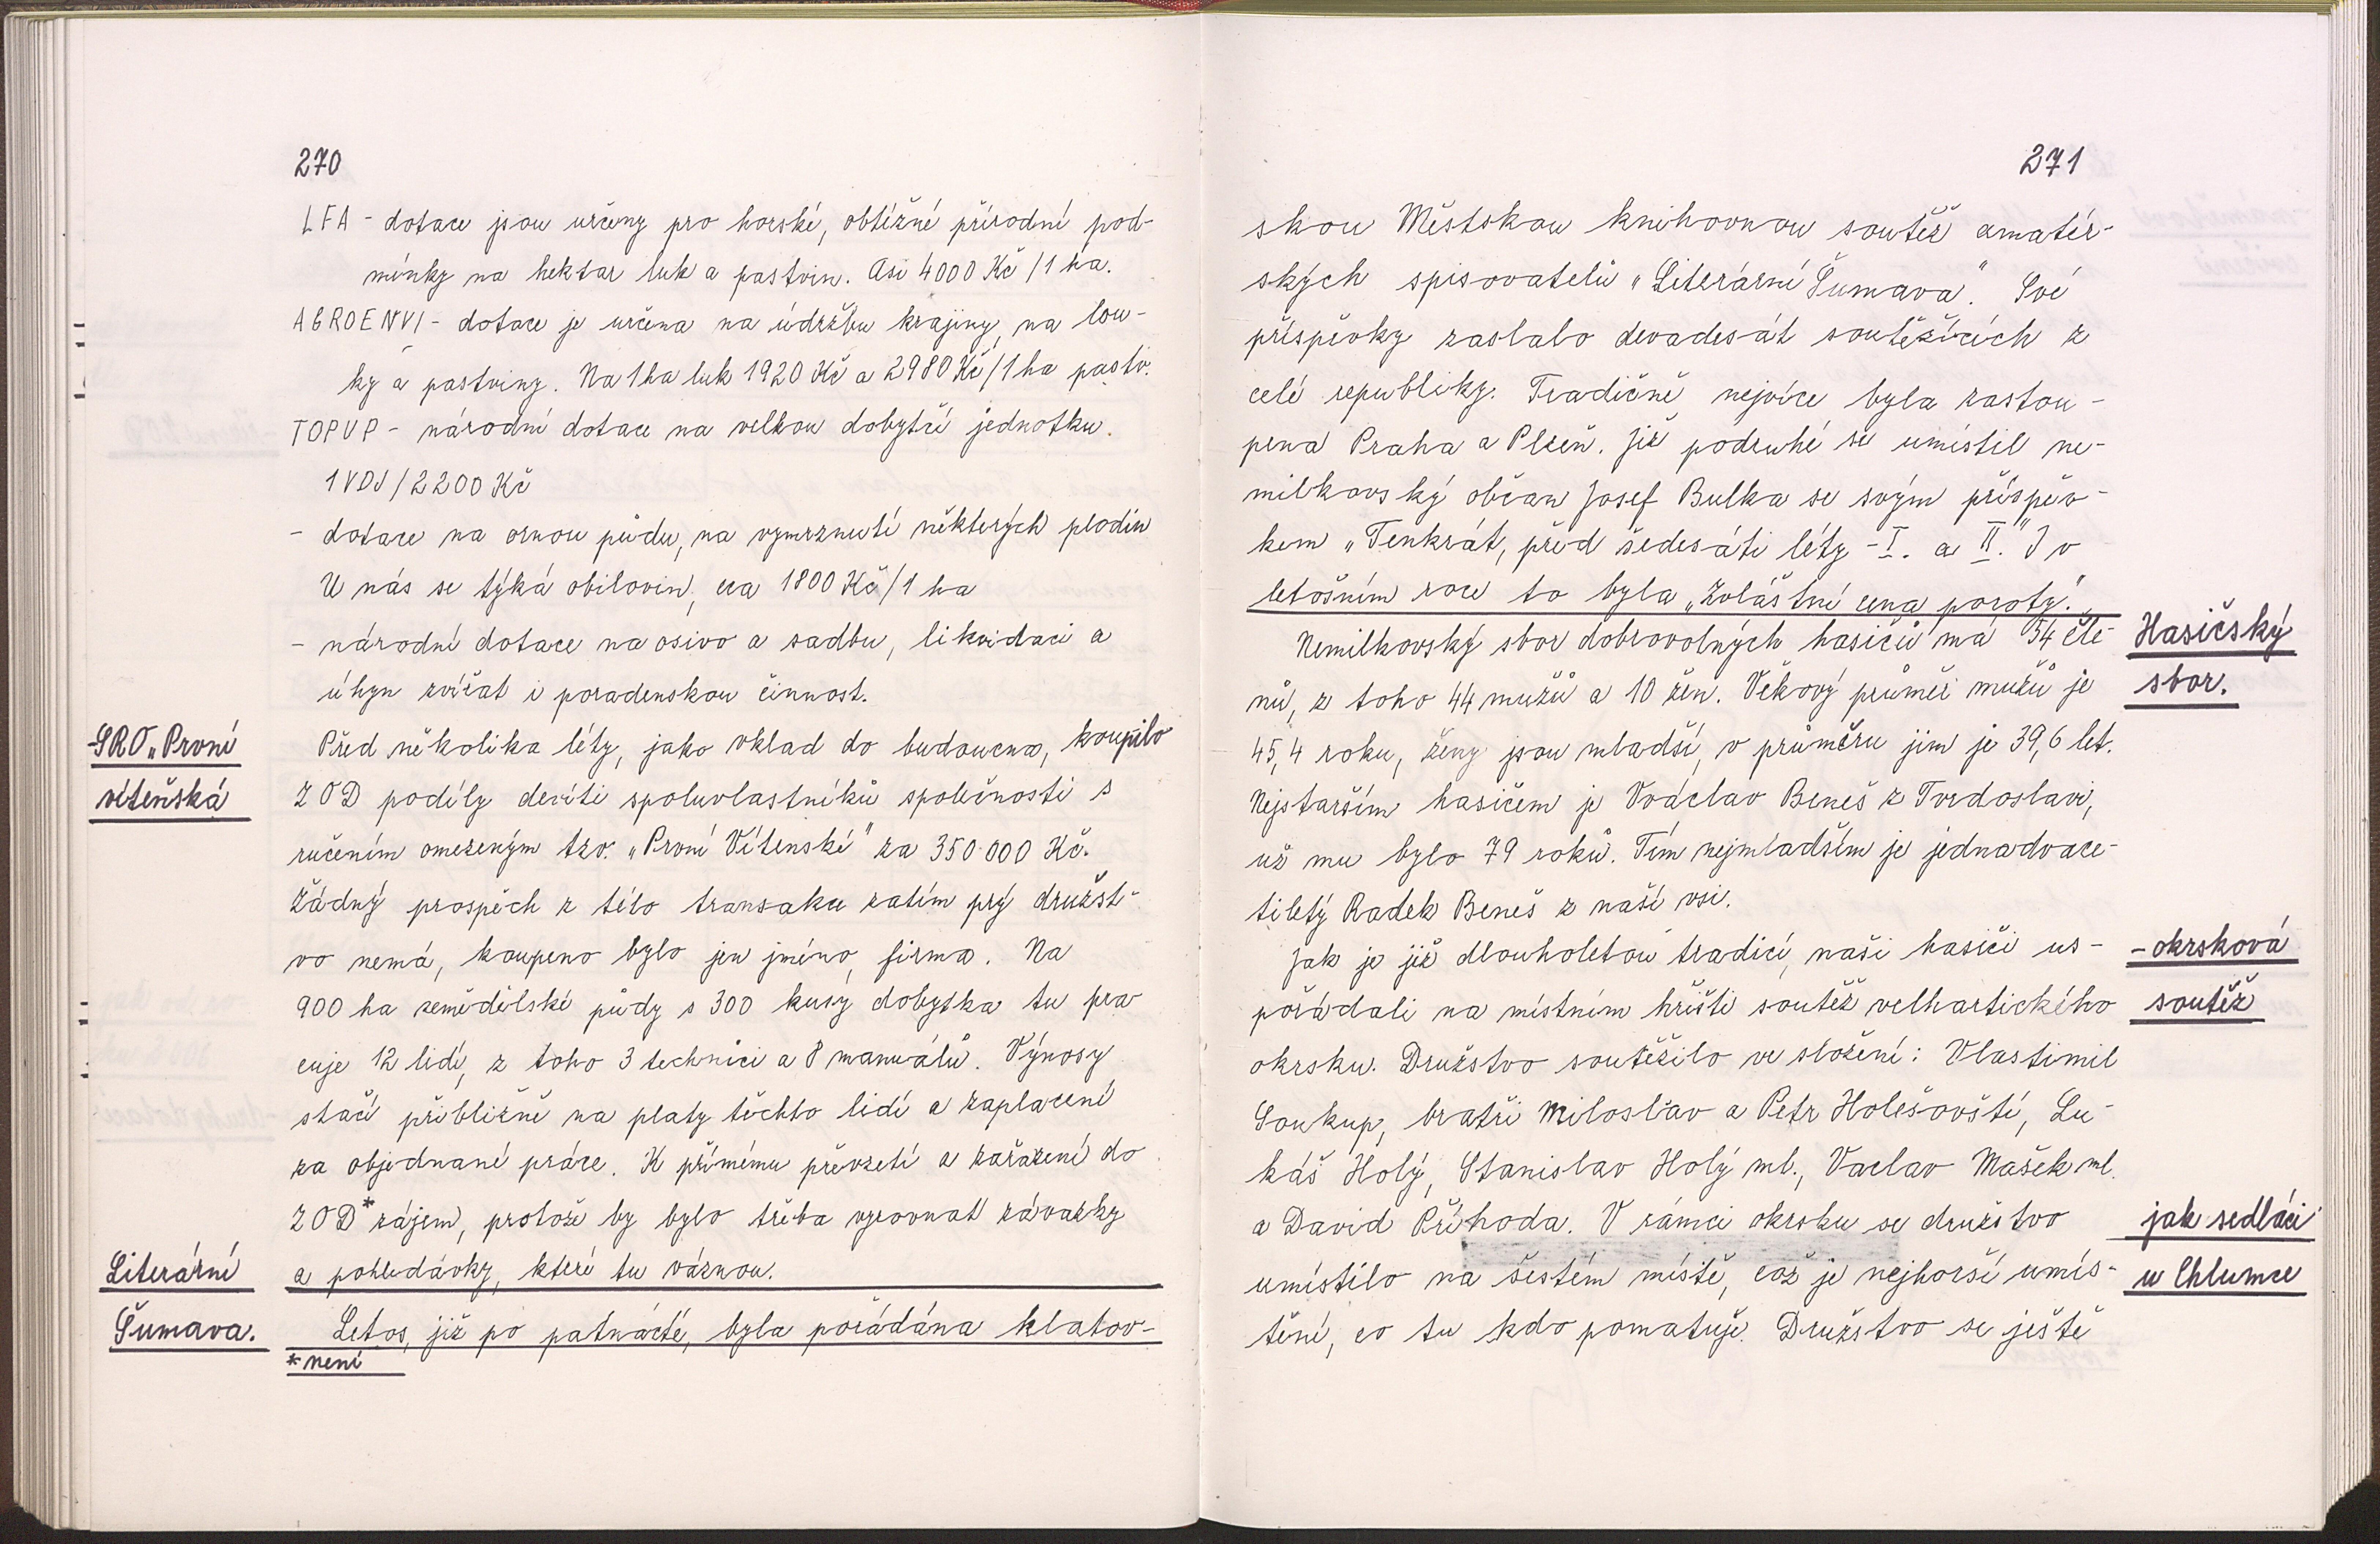 270
LFA - dotace jsou určeny pro horské, obtížné přírodní pod-
mínky na hektar luk a pastvin. Asi 4000 Kč /1 ha.
AGROENVI - dotace je určena na údržbu krajiny, na lou-
ky a pastviny. Na 1 ha luk 1920 Kč a 2980 Kč/1 ha pastv.
TOPUP - národní dotace na velkou dobytčí jednotku.
1 VDJ / 2200 Kč
- dotace na ornou půdu, na vymrznutí některých plodin
U nás se týká obilovin, cca 1800 Kč/1 ha
- národní dotace na osivo a sadbu, likvidaci a
úhyn zvířat i poradenskou činnost.
-SRO „První
víteňská
Před několika léty, jako vklad do budoucna, koupilo
ZOD podíly devíti spoluvlastníků společnosti s
ručením omezeným tzv. „První Vítenské" za 350 000 Kč.
Žádný prospěch z této transakce zatím prý družst-
vo nemá, koupeno bylo jen jméno, firma. Na
900 ha zemědělské půdy s 300 kusy dobytka tu pra
cuje 12 lidí, z toho 3 technici a 8 manuálů. Výnosy
stačí přibližně na platy těchto lidí a zaplacení
za objednané práce. K přímému převzetí a zařazení do
ZOD* zájem, protože by bylo třeba vyrovnat závazky
a pohledávky, které tu váznou.
Literární
Šumava.
Letos, již po patnácté, byla pořádána klatov-
* není
271
skou Městskou knihovnou soutěž amatér-
ských spisovatelů „Literární Šumava". Své
příspěvky zaslalo devadesát soutěžících z
celé republiky. Tradičně nejvíce byla zastou-
pena Praha a Plzeň. Již podruhé se umístil ne-
milkovský občan Josef Bulka se svým příspěv-
kem „Tenkrát, před šedesáti léty - I. a II." I v
letošním roce to byla „Zvláštní cena poroty".
Hasičský
sbor.
Nemilkovský sbor dobrovolných hasičů má 54 čle-
nů, z toho 44 mužů a 10 žen. Věkový průměr mužů je
45,4 roku, ženy jsou mladší, v průměru jim je 39,6 let.
Nejstarším hasičem je Vváclav Beneš z Tvrdoslavi,
už mu bylo 79 roků. Tím nejmladším je jednadvace-
tiletý Radek Beneš z naší vsi.
- okrsková
soutěž
Jak je již dlouholetou tradicí, naši hasiči us-
pořádali na místním hřišti soutěž velhartického
okrsku. Družstvo soutěžilo ve složení: Vlastimil
Soukup, bratři Miloslav a Petr Holešovští, Lu-
káš Holý, Stanislav Holý ml., Vaclav Mašek ml.
a David Příhoda. V rámci okrsku se družstvo
jak sedláci
u Chlumce
umístilo na šestém místě, což je nejhorší umís-
tění, co tu kdo pomatuje. Družstvo se ještě